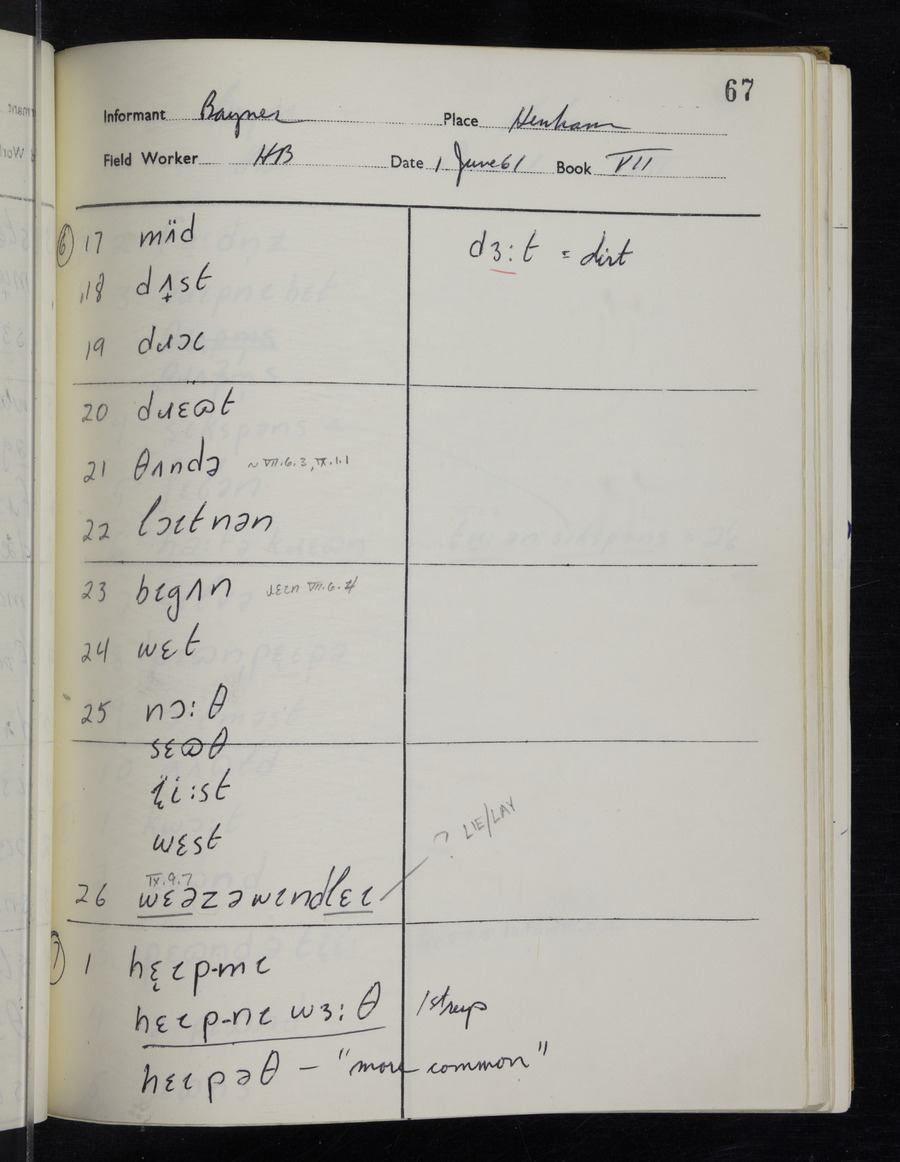 67
Informant Baynes Place Henham
Field Worker HB Date 1 June 61 Book VII
⑥ 17 mʌ̈d dɜ:t = dirt
18 dʌ̟st
19 dɹɔɩ
20 dɹɛɷt
21 θʌndə ~ VII.6.3, IX.1.1
22 lɔɩtnən
23 bɩgʌn ɹɛɩn VII.6.4
24 wɛt
25 nɔ:θ
sɛɷθ
i:st
wɛst
IX.9.7
26 wɛəzəwɩndlɛɩ ? LIE/LAY
⑦ 1 hɛ̝ɩp-mɩ
hɛɩp-nɩ wɜ:θ /strup
hɛɩpəθ – "more common"